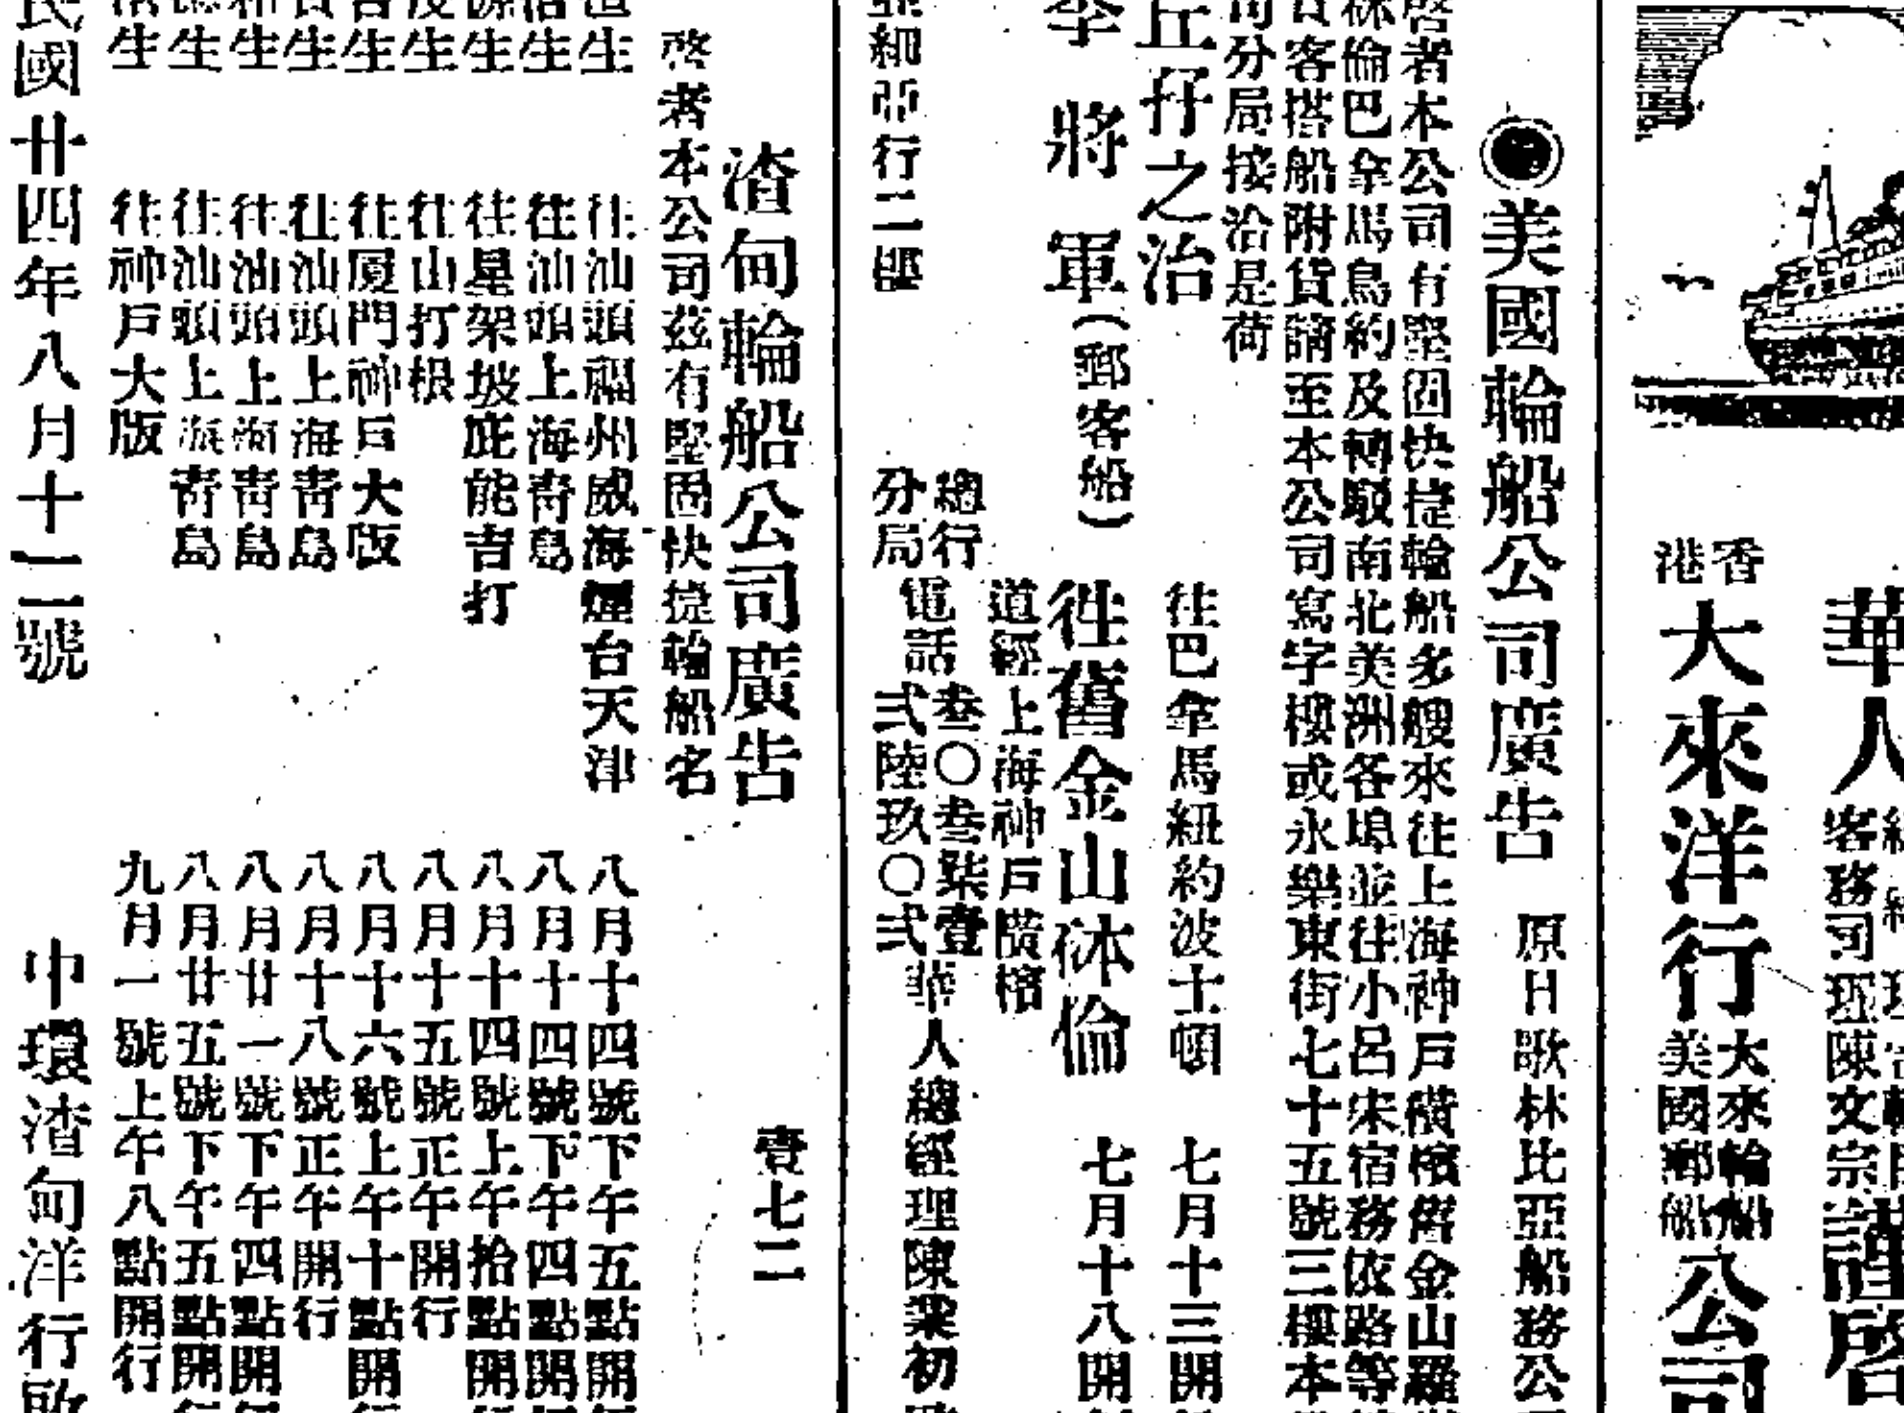 華人
客務司理陳文宗
謹啓
香港
大來洋行
大來輪船
美國郵船
公司
美國輪船公司廣告
原日歌林比亞船務公
啓者本公司有堅固快捷輪船多艘來往上海神戶橫檳舊金山羅
砵倫巴拿馬鳥約及轉駁南北美洲各埠並往小呂宋宿務依路等
貨客搭船附貨請至本公司寫字樓或永樂東街七十五號三樓本
司分局接洽是荷
丘孖之治
往巴拿馬紐約波士頓
七月十三開
李將軍(郵客船)
往舊金山砵倫
七月十八開
道經上海神戶橫檳
總行
電話
叁〇叁柒壹
分局
弍陸玖〇弍
華人總經理陳業初
亞細亞行二樓
渣甸輪船公司廣告
壹七二
啓者本公司茲有堅固快捷輪船名
生 往汕頭福州威海煙台天津 八月十四號下午五點開
生 往汕頭上海青島 八月十四號下午四點開
生 往星架坡庇能吉打 八月十四號上午拾點開
生 往山打根 八月十五號正午開行
生 往厦門神戶大阪 八月十六號上午十點開
生 往汕頭上海青島 八月十八號正午開行
生 往汕頭上海青島 八月廿一號下午四點開
生 往汕頭上海青島 八月廿五號下午五點開
生 往神戶大版 九月一號上午八點開行
民國廿四年八月十二號
中環渣甸洋行啟